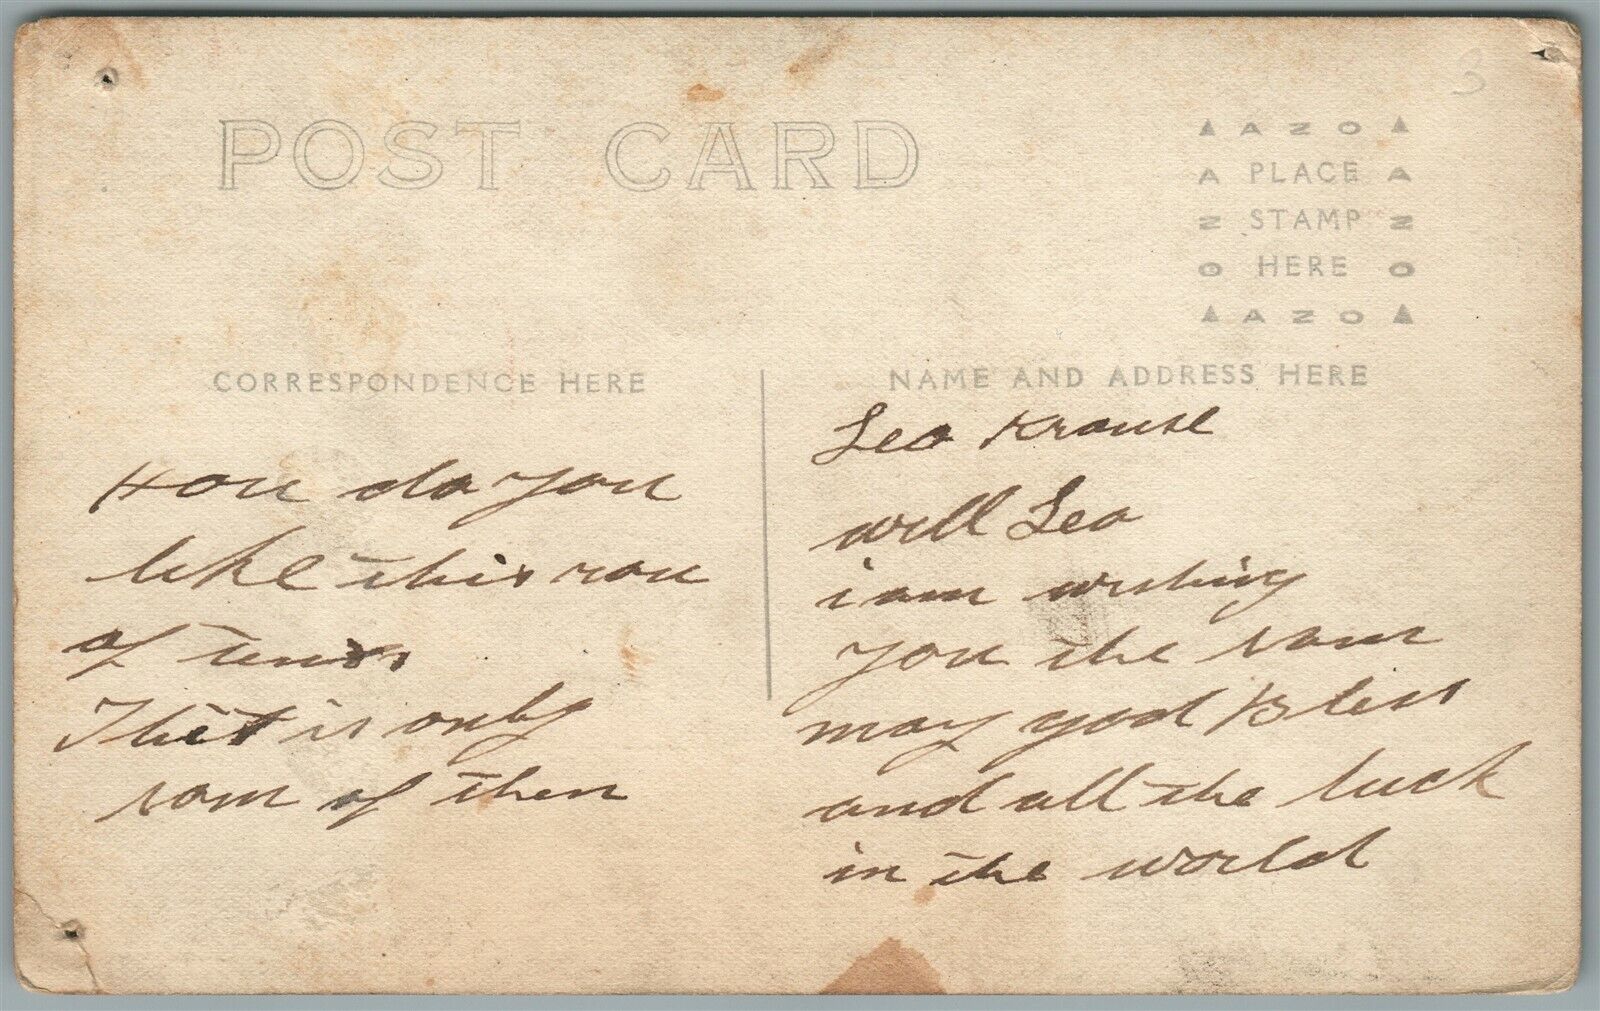 POST CARD
AZO
A PLACE A
N STAMP N
O HERE O
AZO
3
CORRESPONDENCE HERE
How do you
like this rou
of tents
This is only
som of then
NAME AND ADDRESS HERE
Leo Krause
will Leo
i am wishing
you the sam
may god Bless
and all the luck
in the world